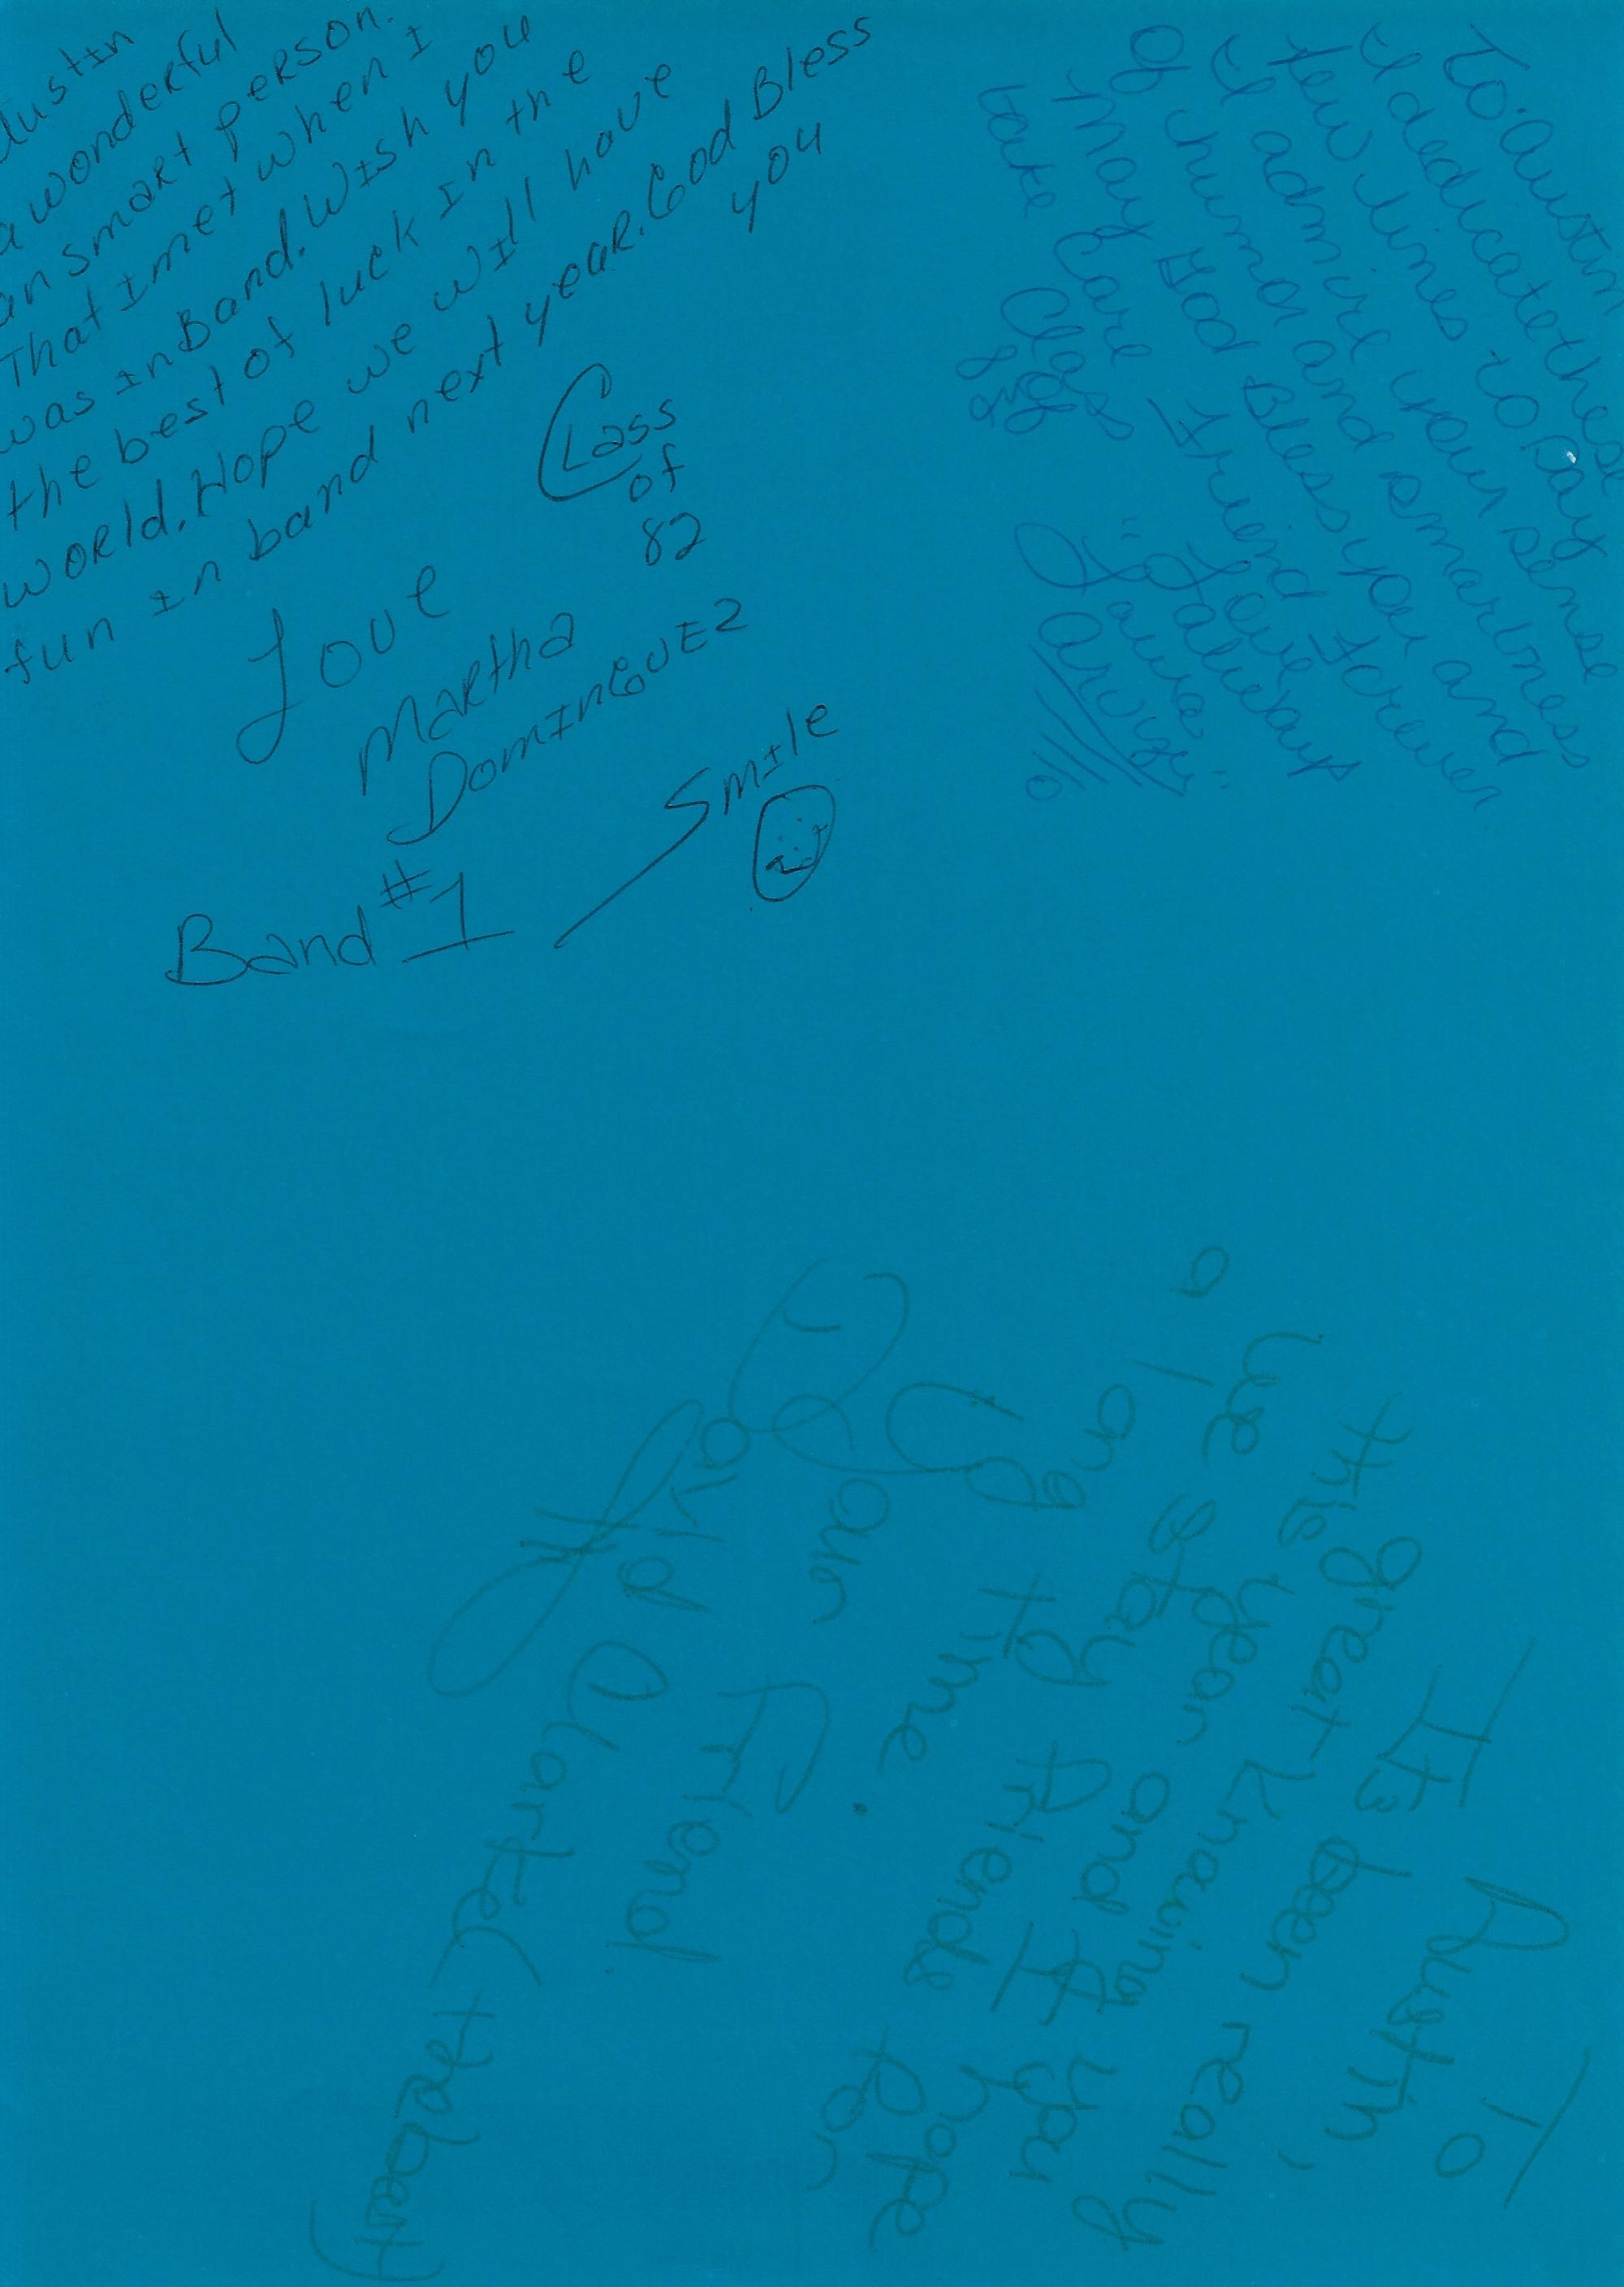 Austin
a wonderful
an smart person.
That I met when I
was in Band. Wish you
the best of luck in the
world. Hope we will have
fun in band next year. God Bless
you
Class
of
82
Love
Martha
DominGUEz
Smile
Band #1
To: Austin
I dedicate these
few lines to say
I admire your sense
of humor and smartness
May God Bless you and
take care Friend Forever
Love
Class
of
"Laura"
To
Austin,
It's been really
great knowing you
this year and I hope
we stay friends for
a long time.
Your Friend
David Clarke